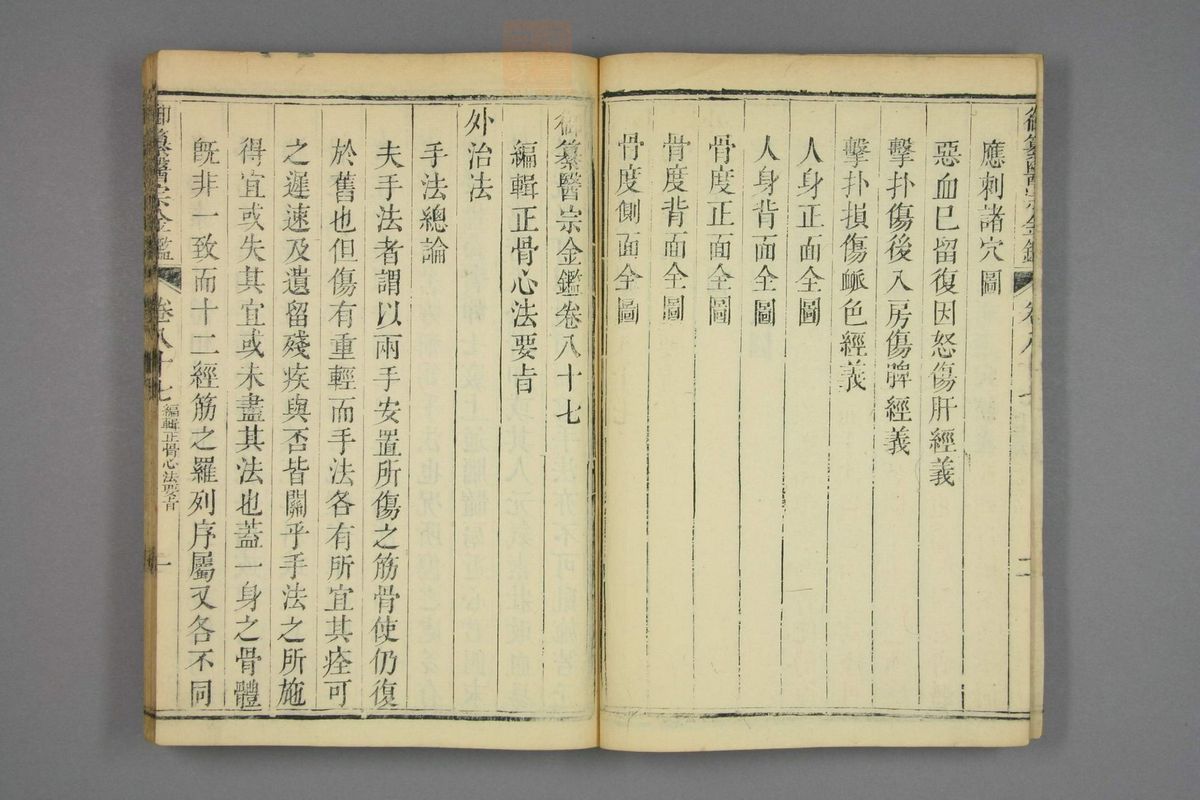 應刺諸穴圖
惡血已留復因怒傷肝經義
擊扑傷後入房傷脾經義
擊扑損傷脈色經義
人身正面全圖
人身背面全圖
骨度正面全圖
骨度背面全圖
骨度側面全圖
御纂醫宗金鑑卷八十七
編輯正骨心法要旨
外治法
手法總論
夫手法者謂以兩手安置所傷之筋骨使仍復
於舊也但傷有重輕而手法各有所宜其痊可
之遲速及遺留殘疾與否皆關乎手法之所施
得宜或失其宜或未盡其法也蓋一身之骨體
旣非一致而十二經筋之羅列序屬又各不同
御纂醫宗金鑑 卷八十七 編輯正骨心法要旨 一